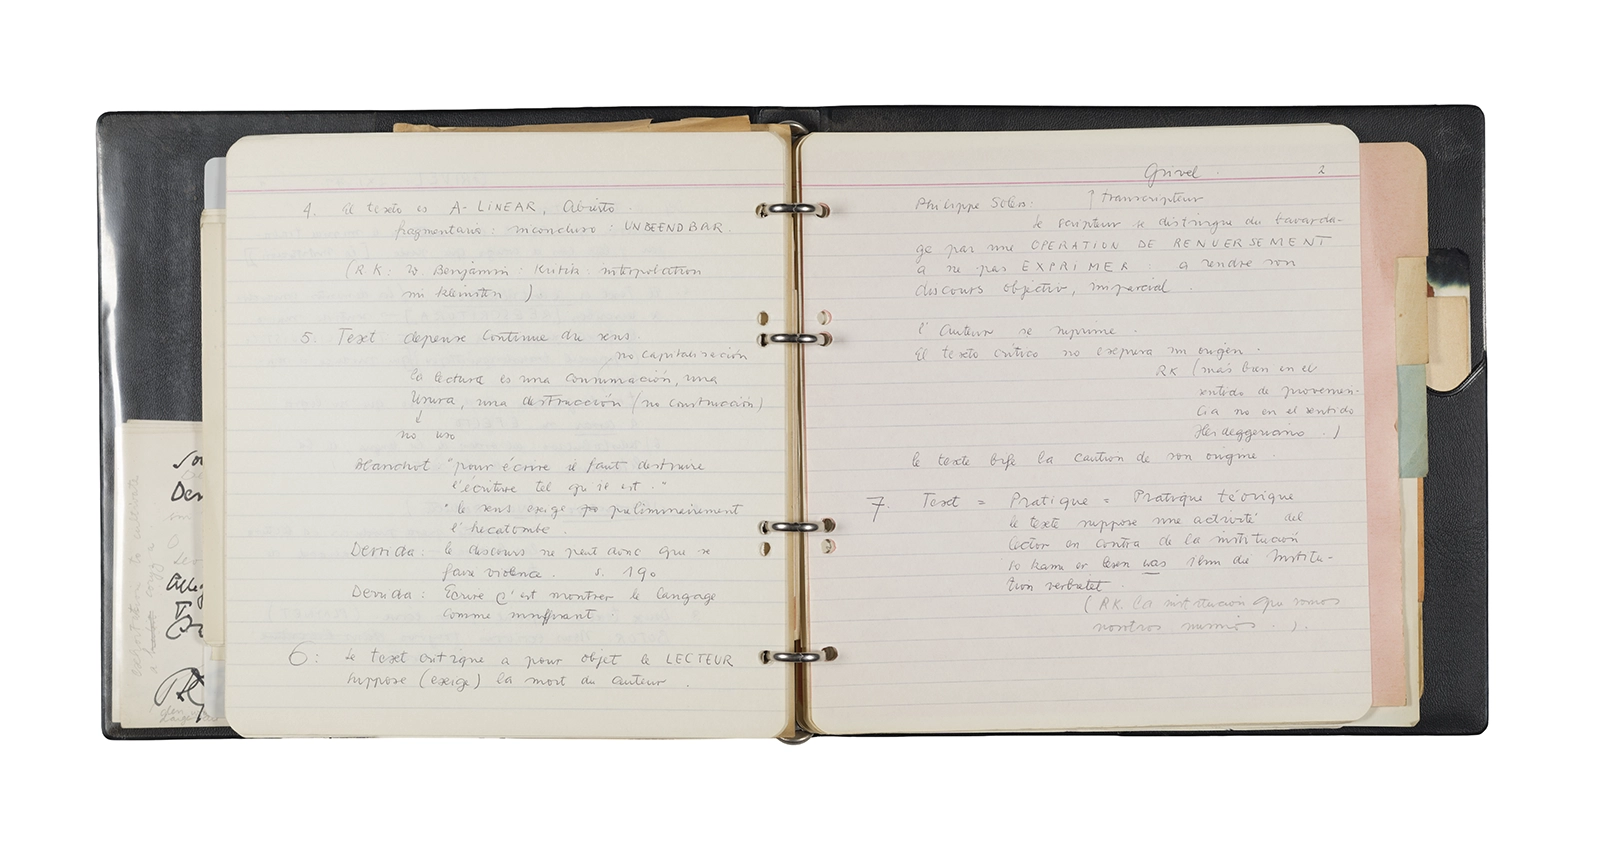 4. El texto es A-LINEAR, Abierto.
fragmentario: inconcluso: UNBEENDBAR.
(RK: W. Benjamin: Kritik: interpolation
im kleinsten)
5. Text depense continue du sens.
no capitalización
la lectura es una consumación, una
Usura, una destrucción (no construcción)
↓
no uso
Blanchot: "pour écrire il faut destruire
l'écriture tel qu'il est."
"le sens exige preliminairement
l'hecatombe.
Derrida: le discours ne peut donc que se
faire violence. s. 190
Derrida: Ecrire c'est montrer le langage
comme insuffisant.
6: Le text critique a pour objet le LECTEUR
suppose (exige) la mort du auteur.
Grivel. 2
Philippe Solers: ↑ transcripteur
le scripteur se distingue du bavarda-
ge par une OPERATION DE RENVERSEMENT
a ne pas EXPRIMER: a rendre son
discours objectiv, imparcial.
l'auteur se suprime.
El texto crítico no expresa un origen.
RK (mas bien en el
sentido de provenien-
cia no en el sentido
Heideggeriano.)
le texte bife la caution de son origine.
7. Text = Pratique = Pratique téorique
le texte suppose une activité del
lector en contra de la institución
so kann er lesen was ihm die Institu-
tion verbietet.
(RK. la institución que somos
nosotros mismos..).
Der